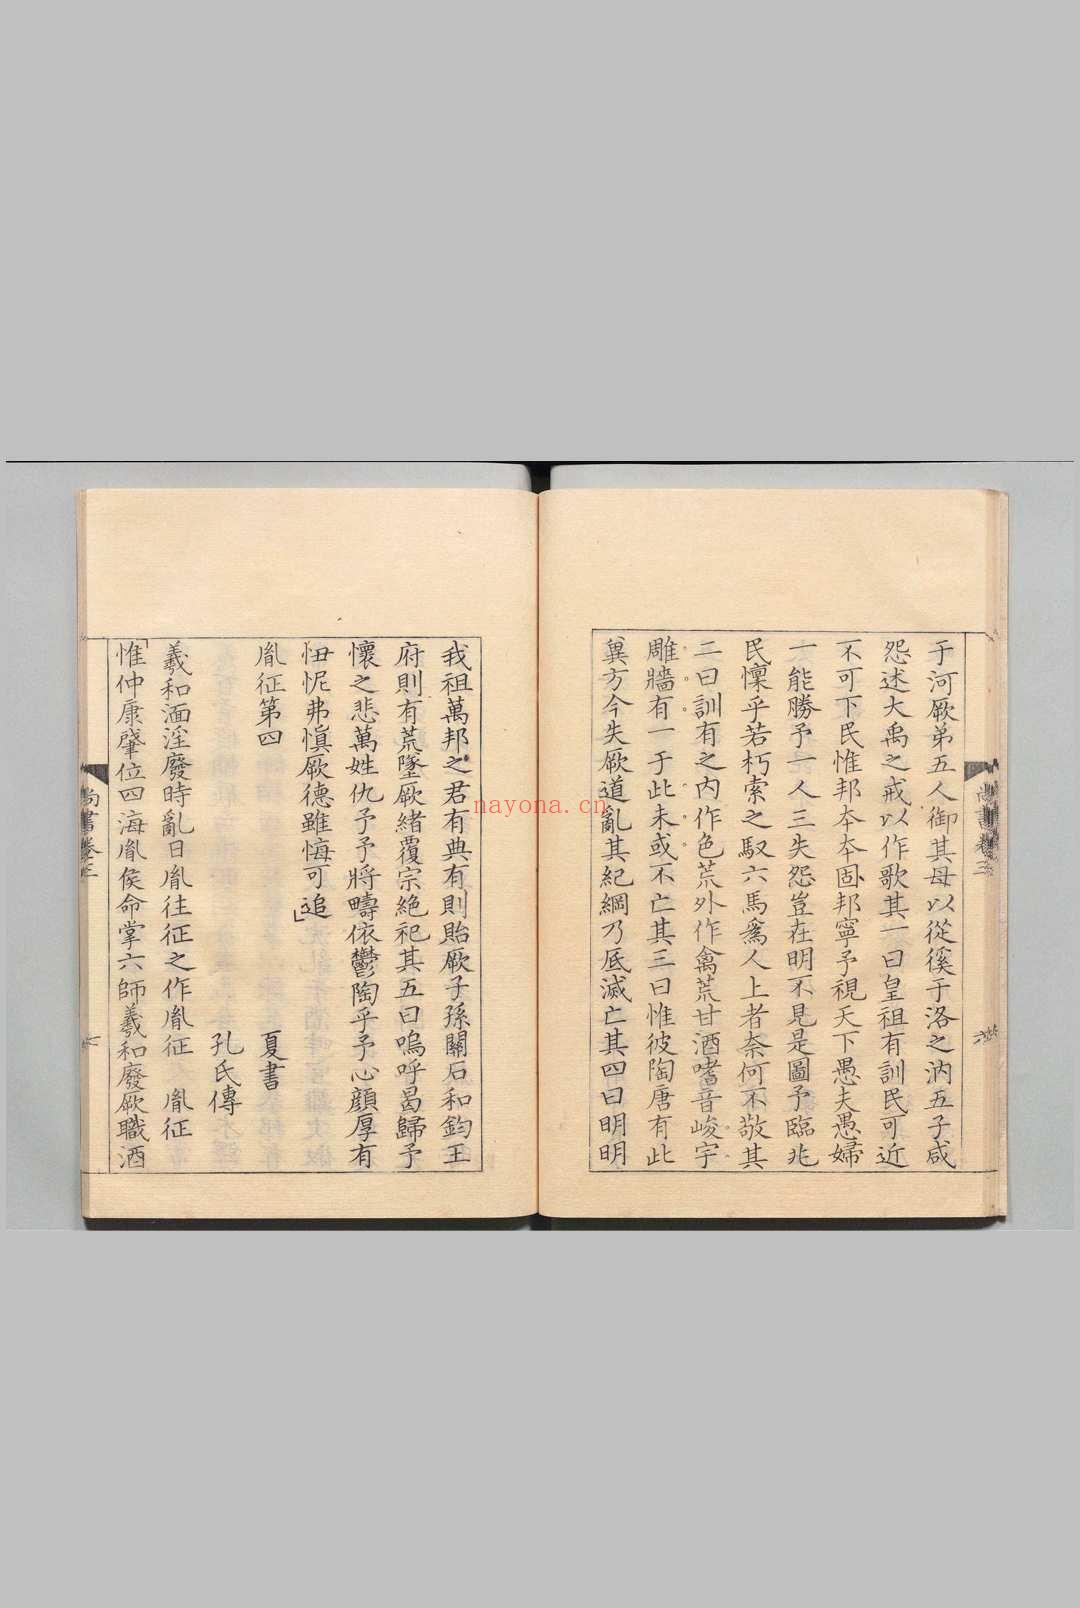 于河厥弟五人御其母以從徯于洛之汭五子咸
怨述大禹之戒以作歌其一曰皇祖有訓民可近
不可下民惟邦本本固邦寧予視天下愚夫愚婦
一能勝予一人三失怨豈在明不見是圖予臨兆
民懍乎若朽索之馭六馬爲人上者奈何不敬其
二曰訓有之內作色荒外作禽荒甘酒嗜音峻宇
雕牆有一于此未或不亡其三曰惟彼陶唐有此
兾方今失厥道亂其紀綱乃厎滅亡其四曰明明
我祖萬邦之君有典有則貽厥子孫關石和鈞王
府則有荒墜厥緒覆宗絶祀其五曰嗚呼曷歸予
懷之悲萬姓仇予予將疇依鬱陶乎予心顔厚有
忸怩弗愼厥德雖悔可追
胤征第四 夏書
孔氏傳
羲和湎淫廢時亂日胤往征之作胤征 胤征
惟仲康肇位四海胤侯命掌六師羲和廢厥職酒
尚書卷三
尚書卷三
nayona.cn